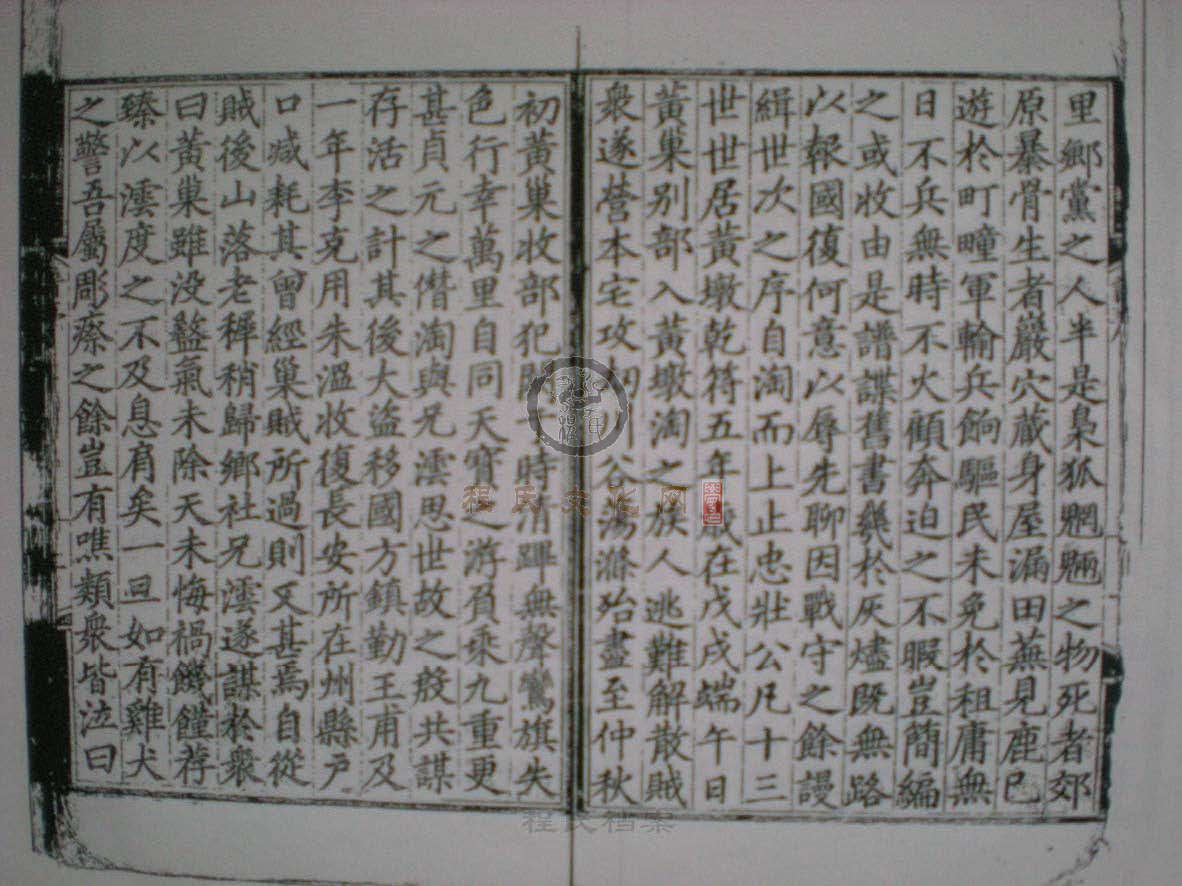 里鄉黨之人半是梟狐魍魎之物死者郊
原暴骨生者巖穴藏身屋漏田蕪見鹿巳
遊於町疃軍輸兵餉驅民未免於租庸無
日不兵無時不火傾奔迫之不暇豈簡編
之或收由是譜諜舊書燬於灰燼既無路
以報國復何意以辱先聊因戰守之餘謾
緝世次之序自淘而上止忠壯公凡十三
世世居黃墩乾符五年歲在戊戌端午日
黃巢別部入黃墩淘之族人逃難解散賊
衆遂營本宅攻川谷蕩滌殆盡至仲秋
初黃巢收部犯時清蹕無聲鸞旗失
色行幸萬里自同天寶之游負乘九重更
甚貞元之僭淘與兄澐思世故之殷共謀
存活之計其後大盜移國方鎮勤王甫及
一年李克用朱溫收復長安所在州縣戶
口減耗其曾經巢賊所過則又甚焉自從
賊後山落老稺稍歸鄉社兄澐遂謀於衆
曰黃巢雖没盭氣未除天未悔禍饑饉荐
臻以澐度之不及息肩矣一旦如有雞犬
之警吾屬彫瘵之餘豈有噍類衆皆泣曰
程氏文化网
程氏档案